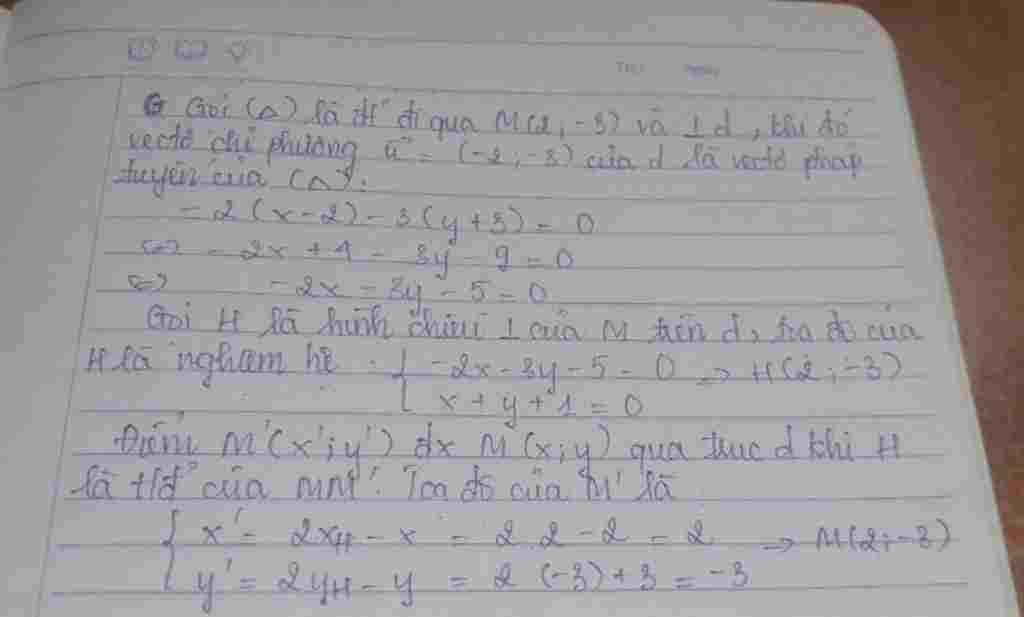 Gọi (Δ) là đt đi qua M(2; -3) và ⊥ d, khi đó
vectơ chỉ phương u⃗ = (-2; -3) của d là vectơ pháp
tuyến của (Δ):
-2(x-2) - 3(y+3) = 0
<=> -2x + 4 - 3y - 9 = 0
<=> -2x - 3y - 5 = 0
Gọi H là hình chiếu ⊥ của M trên d, tọa độ của
H là nghiệm hệ { -2x - 3y - 5 = 0 → H(2; -3)
x + y + 1 = 0
Điểm M'(x'; y') đx M(x; y) qua trục d khi H
là tđ của MM'. Tọa độ của M' là
{ x' = 2xH - x = 2.2 - 2 = 2 → M(2; -3)
y' = 2yH - y = 2(-3) + 3 = -3